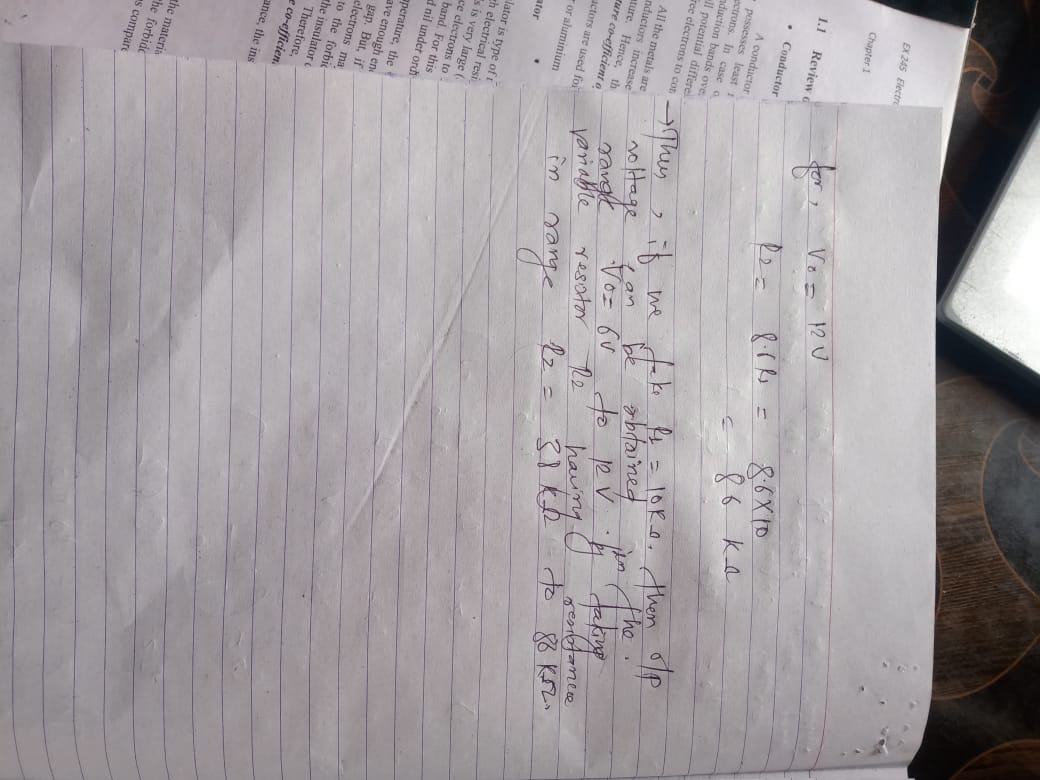 EX 245 Electro
Chapter 1
1.1 Review o
• Conductor
A conductor
possesses least r
ectrons. In case o
nduction bands over
ll potential differe
ree electrons to con
All the metals are
nductors increase
ture. Hence, th
ture co-efficient o
uctors are used for
or aluminium
ator •
lator is type of t
h electrical resi
s is very large (
ce electrons to
band. For this
d nil under ordi
perature, the
ave enough ene
gap. But, if
electrons ma
to the forbid
the insulator c
Therefore,
e co-efficien
ance, the ins
the materia
he forbidd
s compare
for, V0 = 12V
R2 = 8.6R1 = 8.6X10
= 86 KΩ
→Thus, if we take R1 = 10KΩ. then o/p
voltage can be obtained in the
range V0 = 6V to 12V. by taking
variable resistor R2 having resistance
in range R2 = 38 KΩ to 86 KΩ.